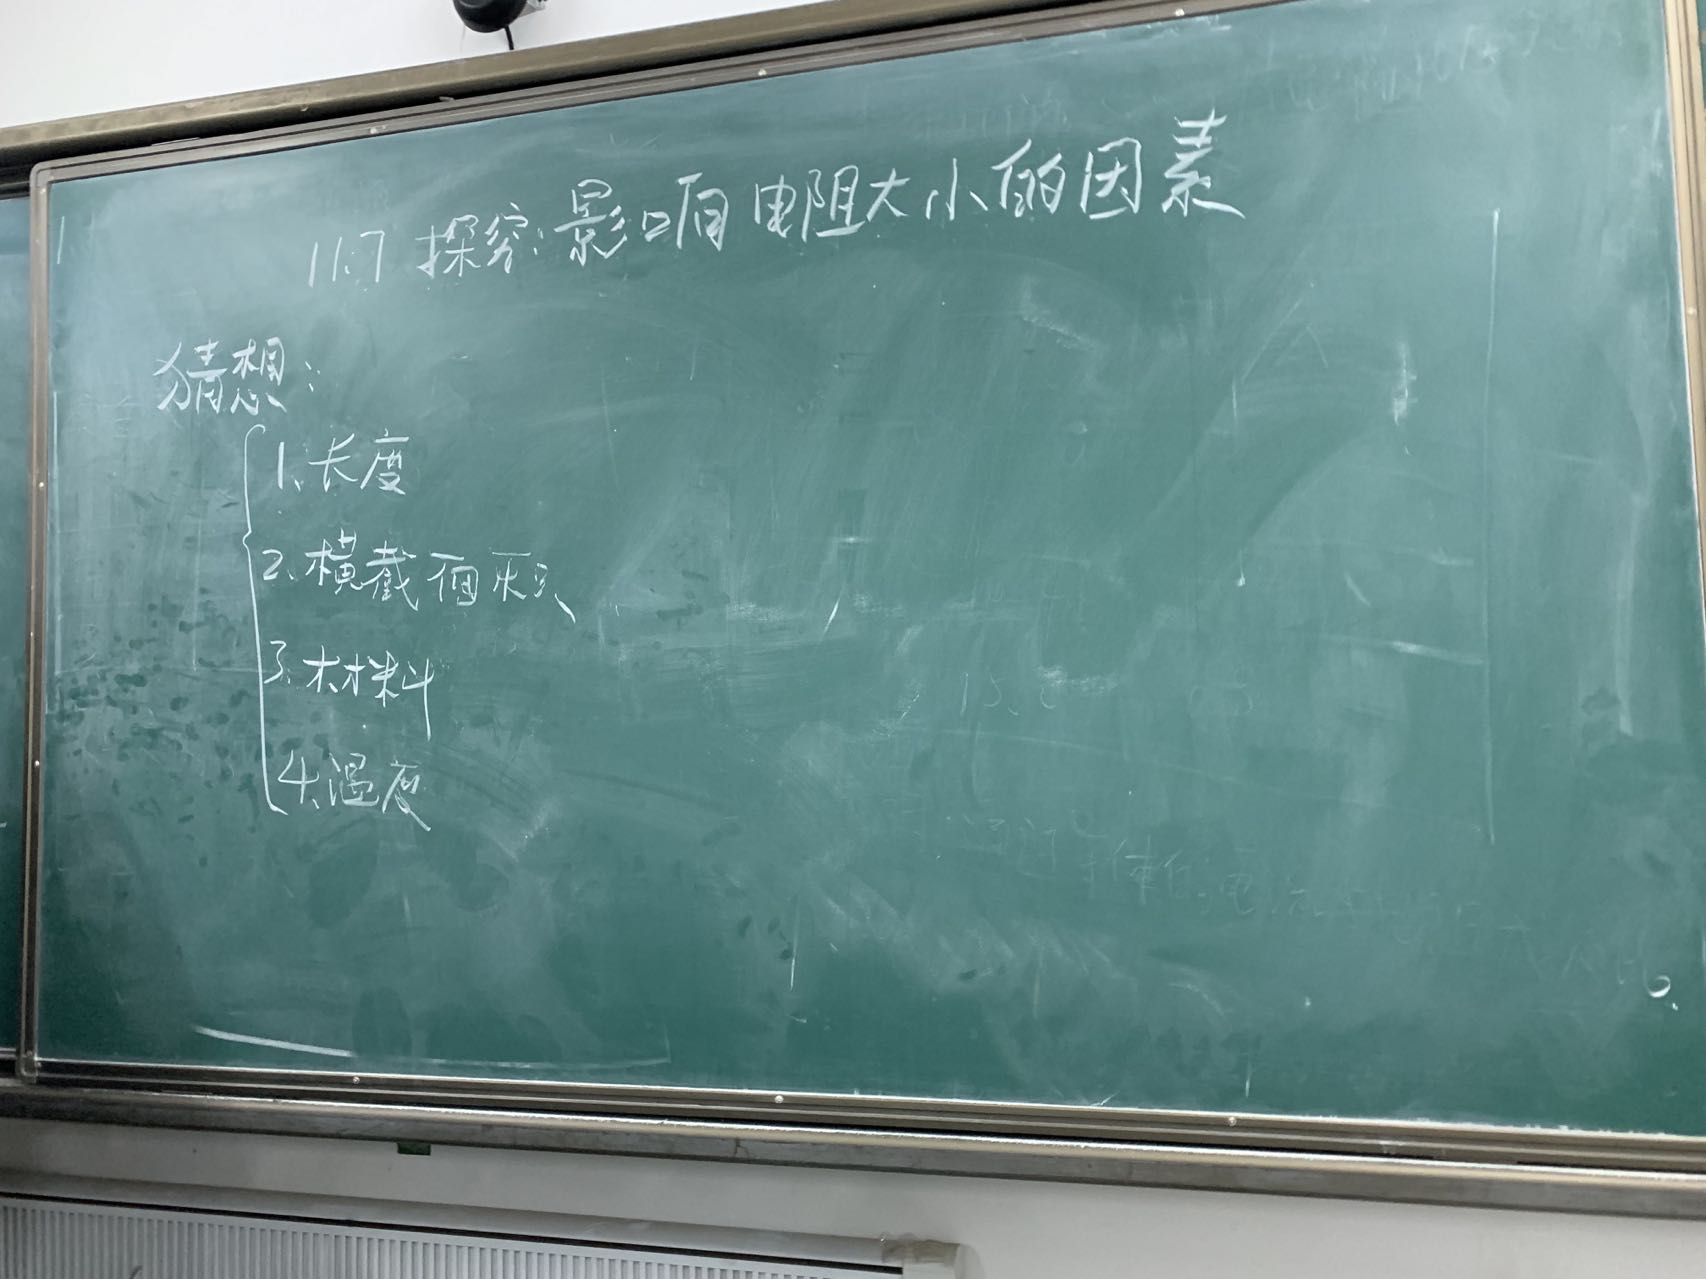 11.7 探究:影响电阻大小的因素
猜想:
1、长度
2、横截面积
3、材料
4、温度